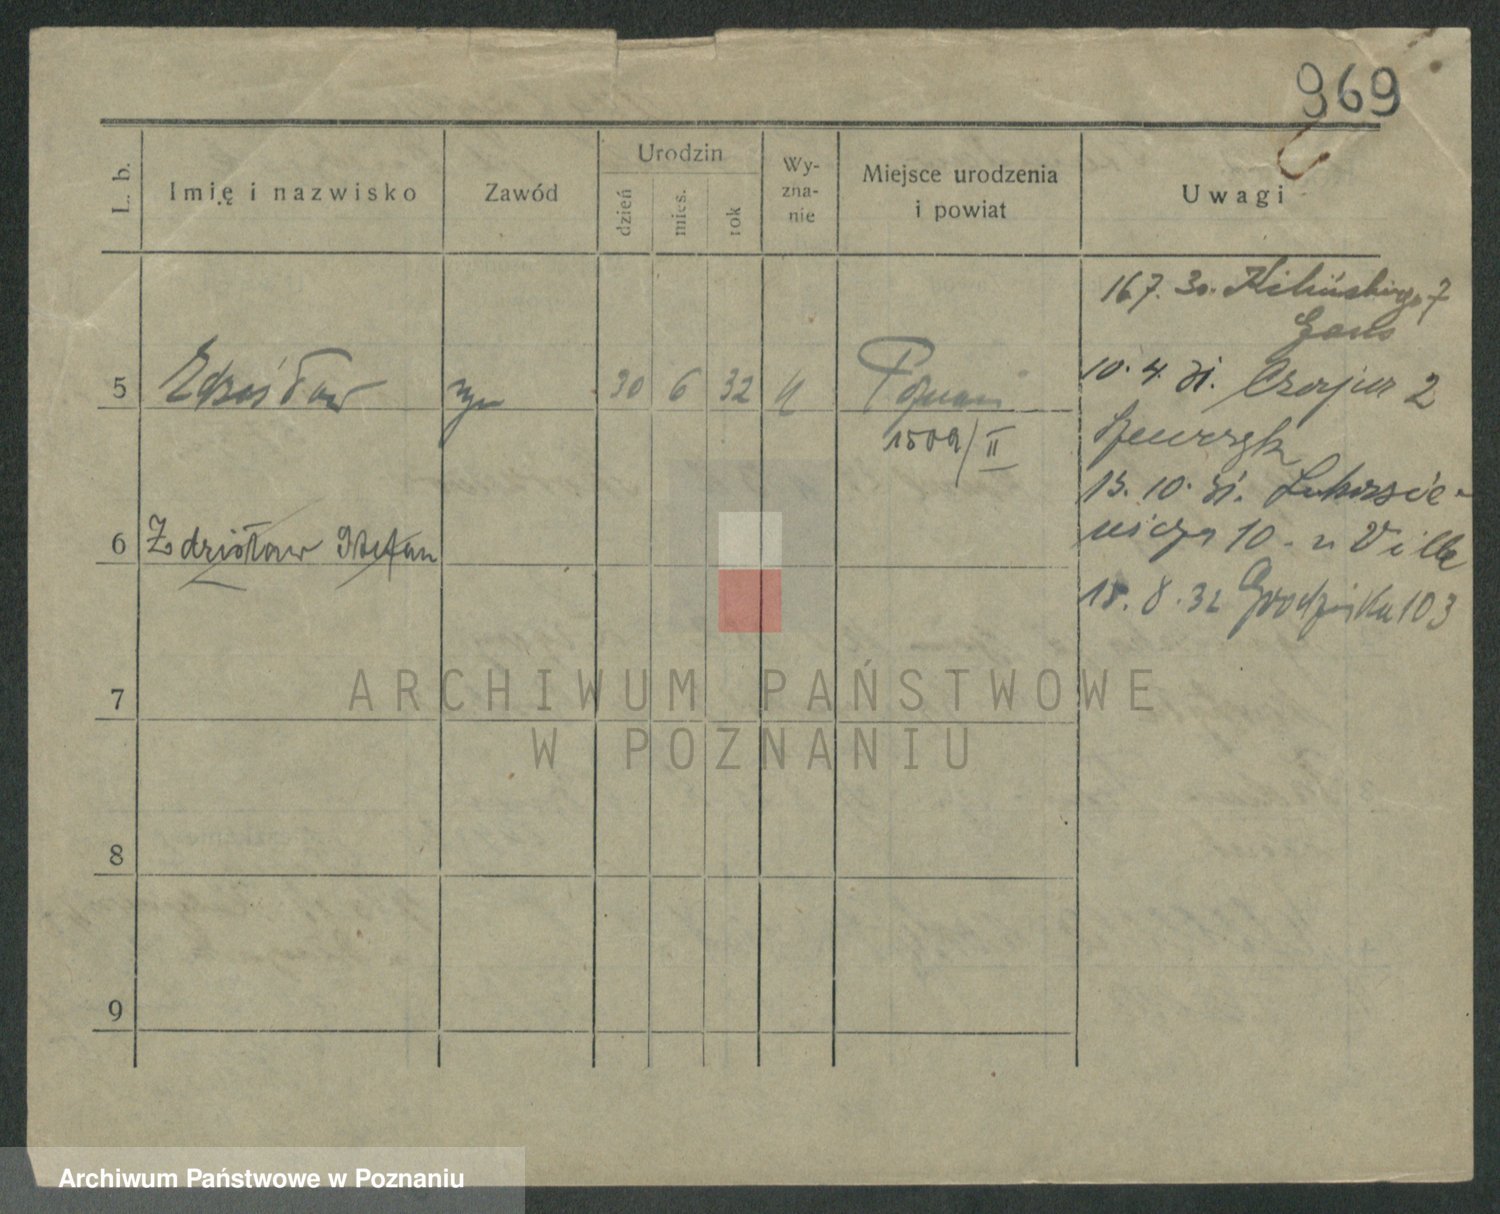 969
L. b.
Imię i nazwisko
Zawód
Urodzin
dzień
mies.
rok
Wy-
zna-
nie
Miejsce urodzenia
i powiat
Uwagi
16 7. 30. Kilińskiego 7
Gans
5 Zdzisław syn 30 6 32 k Poznań
10. 4. 31. 2
1509/II
Szewczyk
13. 10. 31. Łukasie-
wicza 10 - u Wilk
6 Zdzisław Stefan
18. 8. 32 Grodziska 103
ARCHIWUM PAŃSTWOWE
W POZNANIU
7
8
9
Archiwum Państwowe w Poznaniu